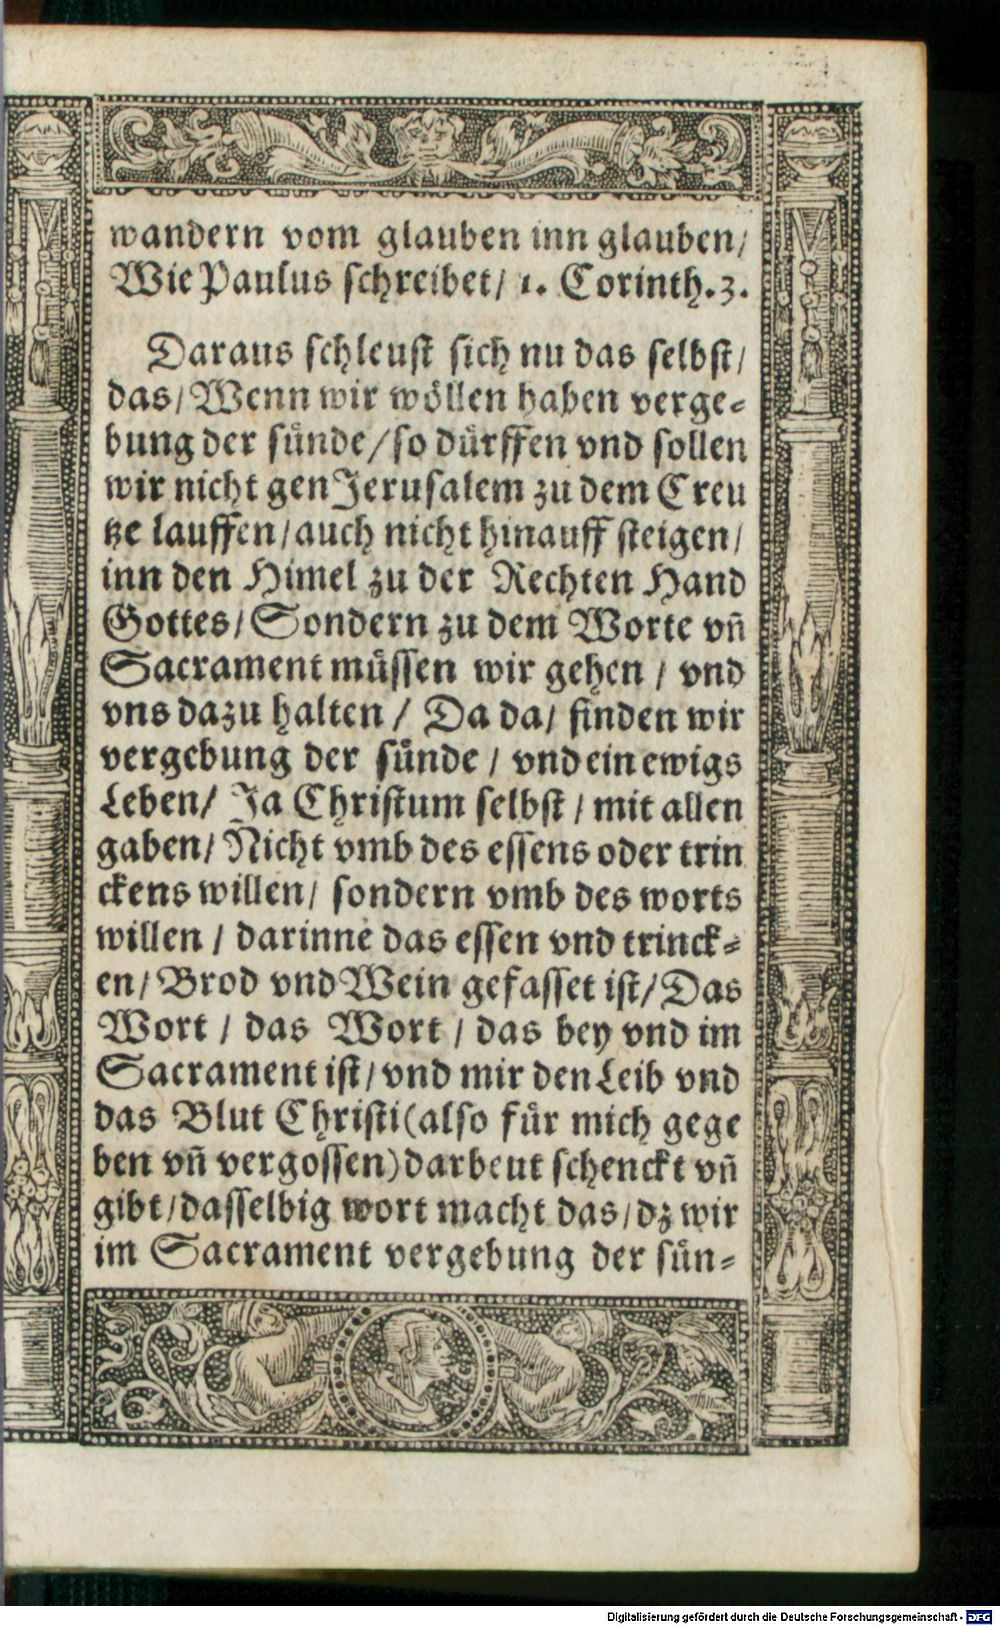 wandern vom glauben inn glauben/
Wie Paulus schreibet/ 1. Corinth.3.
Daraus schleust sich nu das selbst/
das/ Wenn wir wöllen haben verge=
bung der sünde/ so dürffen vnd sollen
wir nicht gen Jerusalem zu dem Creu
tze lauffen/ auch nicht hinauff steigen/
inn den Himel zu der Rechten Hand
Gottes/ Sondern zu dem Worte vñ
Sacrament müssen wir gehen / vnd
vns dazu halten / Da da/ finden wir
vergebung der sünde / vnd ein ewigs
Leben/ Ja Christum selbst / mit allen
gaben/ Nicht vmb des essens oder trin
ckens willen/ sondern vmb des worts
willen / darinne das essen vnd trinck=
en/ Brod vnd Wein gefasset ist/ Das
Wort / das Wort / das bey vnd im
Sacrament ist/ vnd mir den Leib vnd
das Blut Christi (also für mich gege
ben vñ vergossen) darbeut schenckt vñ
gibt/ dasselbig wort macht das/ dz wir
im Sacrament vergebung der sün=
Digitalisierung gefördert durch die Deutsche Forschungsgemeinschaft - DFG